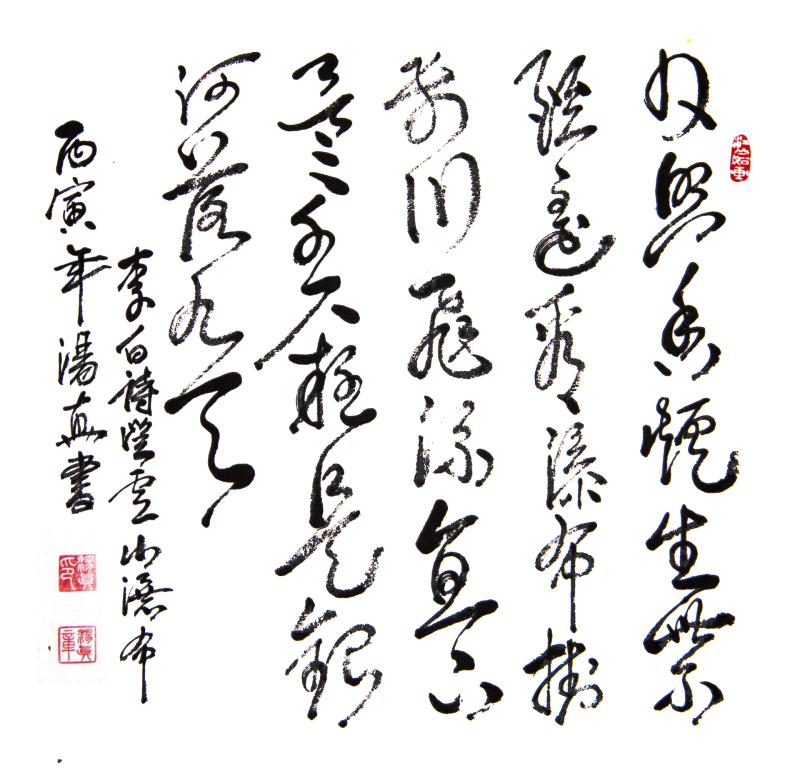 日照香爐生紫
煙遙看瀑布掛
前川飛流直下
三千尺疑是銀
河落九天
李白詩望山瀑布
丙寅年湯真書
湯真印
湯真章